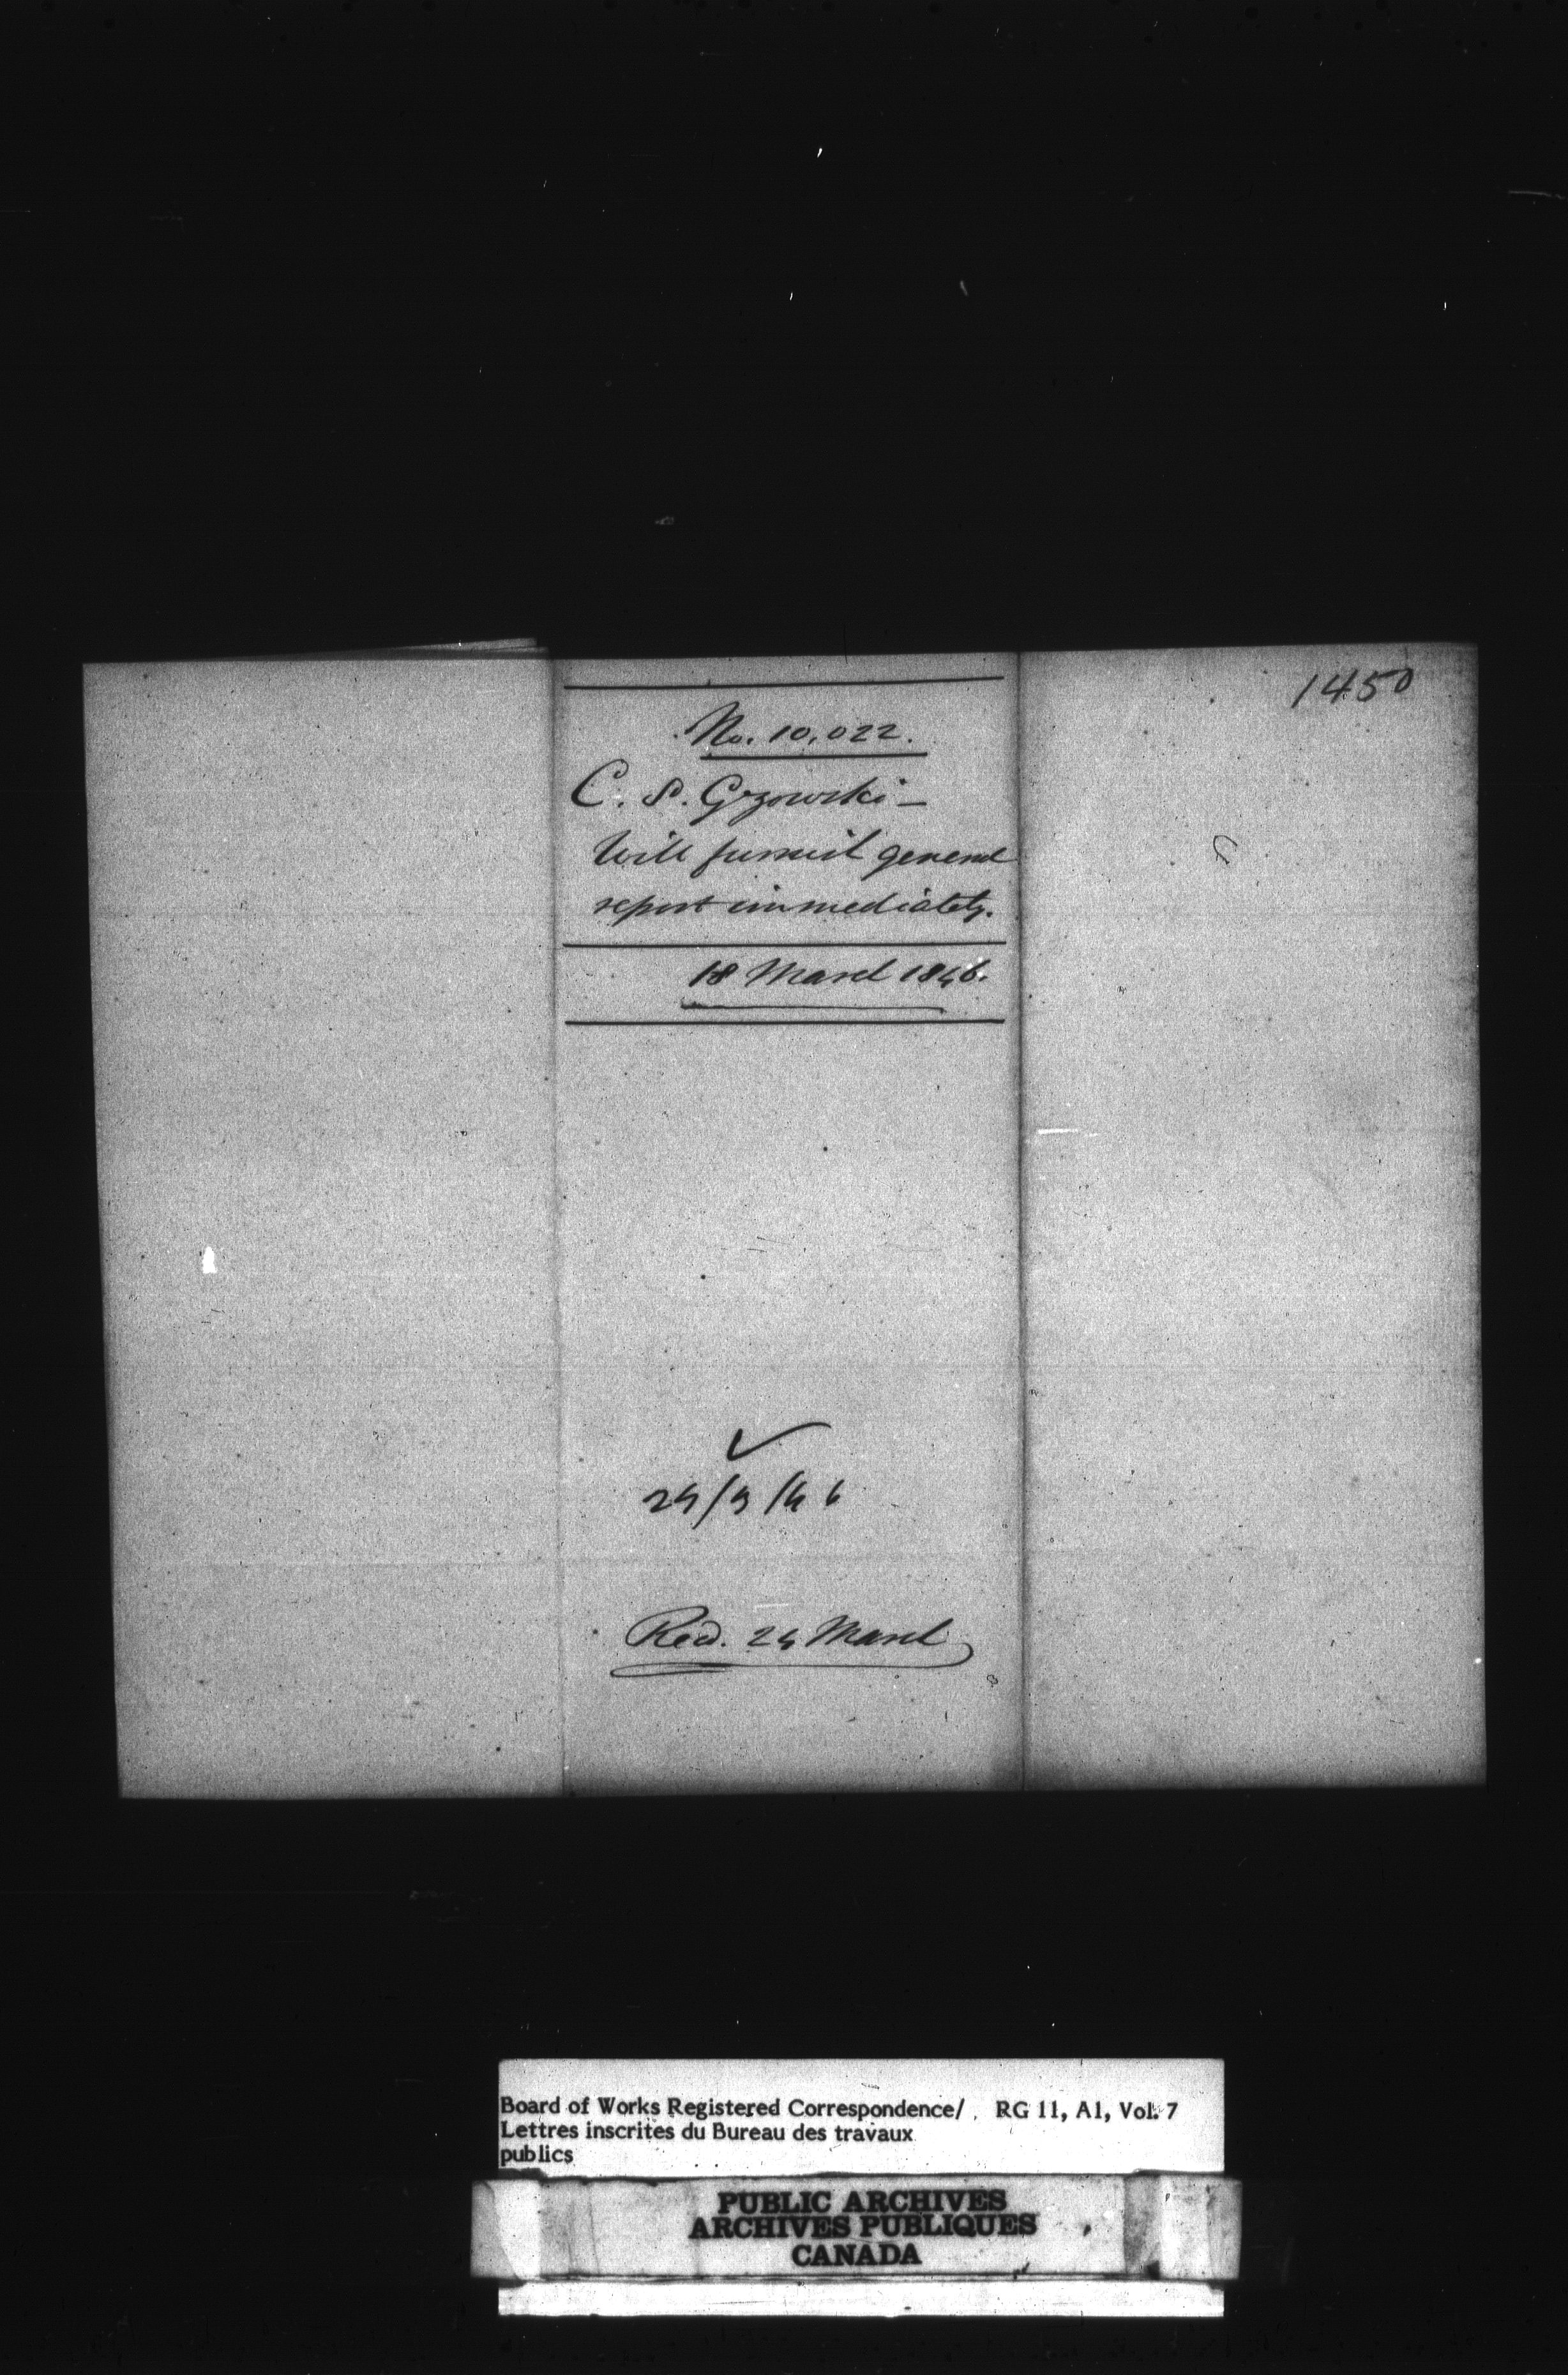 1450
No. 10,022.
C. S. Gzowski —
Will furnish general
report immediately.
18 March 1846.
24/3/46
Recd. 24 March
Board of Works Registered Correspondence/ RG 11, A1, Vol. 7
Lettres inscrites du Bureau des travaux
publics
PUBLIC ARCHIVES
ARCHIVES PUBLIQUES
CANADA